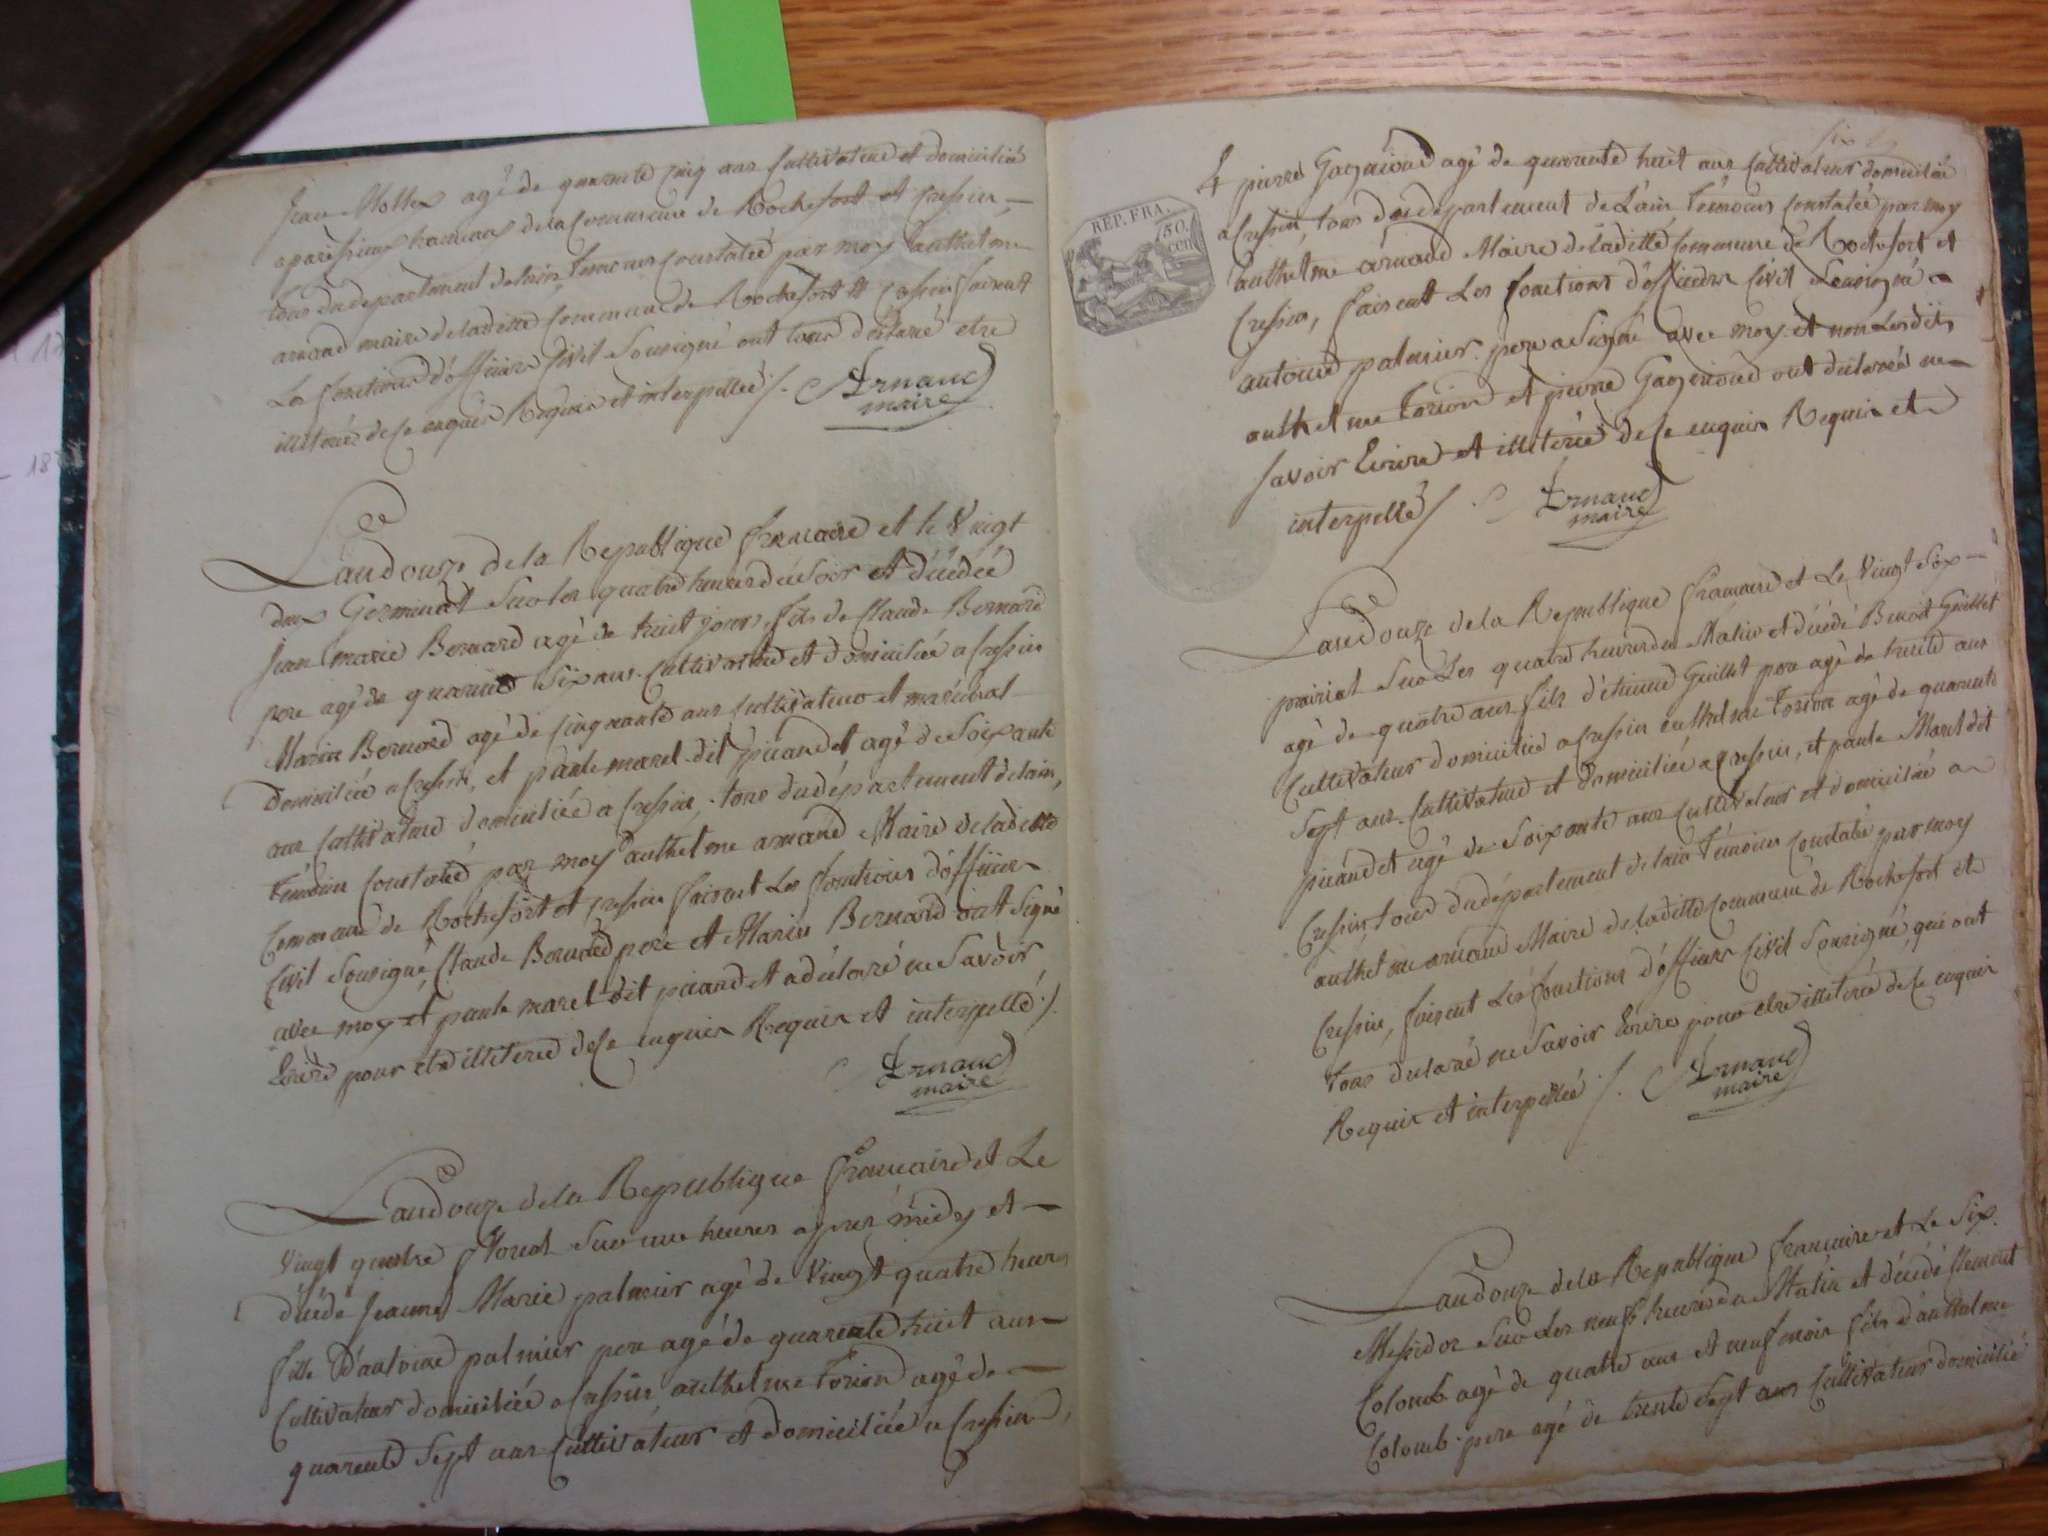 Jean Mollex agé de quarante cinq ans Cultivateur et domicilié
hameau de la Commune de Rochefort et Cressin
tous du département de lain, temoins constatée par moy anthelme
arnaud maire de laditte Commune de Rochefort et Cressin faisant
Les fonctions d'officier Civil Sousigné ont tous déclaré etre
illiterés de ce enquis Requis et interpellée /. Arnaud
maire
Landouze de la Republique francaise et le Vingt
deux Germinal Sur les quatre heures du Soir est décédée
Jean marie Bernard agé de huit jours, fils de Claude Bernard
pere agé de quarante Six ans Cultivateur et domicilié a Cressin
Marin Bernard agé de Cinquante ans Cultivateur et maréchal
domiciliée a Cressin, et paule marel dit picandet agé de Soixante
ans Cultivateur domiciliée a Cressin tous du département de lain,
témoins Constatée par moy anthelme arnaud Maire de laditte
Commune de Rochefort et Cressin faisant Les fonctions d'officier
Civil Sousigné, Claude Bernard pere et Marin Bernard ont Signé
avec moy et paule marel dit picandet a déclaré ne Savoir
Ecrire pour etre illiteré de ce enquis Requis et interpellé /.
Arnaud
maire
Landouze de la Republique francaise et Le
Vingt quatre floreal Sur une heures apres midy est
décédé Jeanne Marie palmier agé de Vingt quatre heures
fille D'antoine palmier pere agé de quarante huit ans
Cultivateur domiciliée a Cressin, anthelme torion agé de
quarente Sept ans Cultivateur et domiciliée a Cressin,
Six
REP. FRA.
50.
cen.
Et pierre Gagnioud agé de quarente huit ans Cultivateur domicilié
a Cressin, tous du département de Lain temoins constatée par moy
anthelme arnaud Maire de laditte Commune de Rochefort et
Cressin, faisant Les fonctions d'officier Civil Sousigné
antoine palmier pere a Signé avec moy et non Lesdits
anthelme torion et pierre Gagnioud ont déclarés ne
Savoir Ecrire et illiterés de ce enquis Requis et
interpellé /. Arnaud
maire
Landouze de la Republique francaise et Le Vingt Six
prairial Sur Les quatre heures du Matin est décédé Benoit Guillet
agé de quatre ans fils d'étienne Guillet pere agé de trente ans
Cultivateur domicilié a Cressin anthelme torion agé de quarante
Sept ans Cultivateur et domiciliée a Cressin, et paule Marel dit
picandet agé de Soixante ans Cultivateur et domiciliée a
Cressin tous du département de lain témoins constatée par moy
anthelme arnaud Maire de laditte Commune de Rochefort et
Cressin, faisant Les fonctions d'officier Civil Sousigné, qui ont
tous declaré ne Savoir Ecrire pour etre illiterée de ce enquis
Requis et interpellée /. Arnaud
maire
Landouze de la Republique francaise et Le Six
Messidor Sur Les neuf heures du Matin est décédé Clement
Colomb agé de quatre ans et neuf mois fils d'anthelme
Colomb pere agé de trente Sept ans Cultivateur domicilié